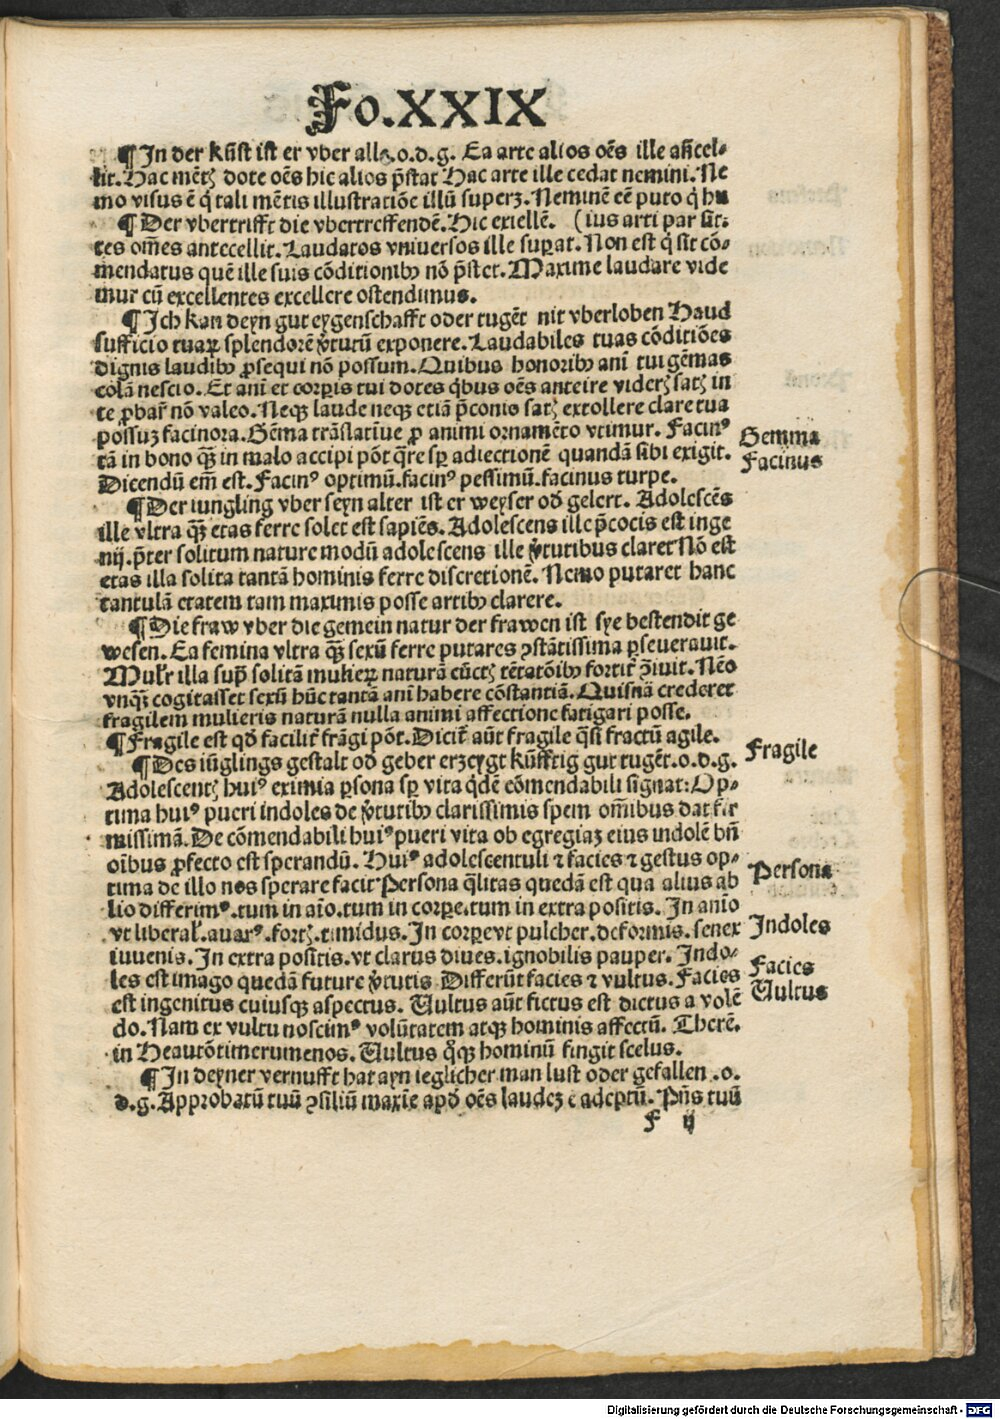 Fo.XXIX
¶In der kũst ist er vber alle.o.d.g. Ea arte alios oẽs ille añcel⸗
lit. Hac mẽtꝭ dote oẽs hic alios p̃stat Hac arte ille cedat nemini. Ne
mo visus ẽ q̇ tali mẽtis illustratiõe illũ superꝫ. Neminẽ eẽ puto q̇ hu
¶Der vbertrifft die vbertreffendẽ. Hic exiellẽ. (ius arti par sit:
tes om̃es antecellit. Laudatos vniuersos ille suꝑat. Non est q̇ sit cõ⸗
mendatus quẽ ille suis cõditionibꝰ nõ p̃stet. Maxime laudare vide
mur cũ excellentes excellere ostendimus.
¶Ich kan deyn gut eygenschafft oder tugẽt nit vberloben Haud
sufficio tuaꝝ splendorẽ v̓tutũ exponere. Laudabiles tuas cõditiões
dignis laudibꝰ ꝓsequi nõ possum. Quibus honoribꝰ anĩ tui gẽmas
colã nescio. Et anĩ et corꝑis tui dotes q̇bus oẽs anteire viderꝭ satꝭ in
te ꝓbar̃ nõ valeo. Neqꝫ laude neqꝫ etiã p̃conis satꝭ extollere clare tua
possuꝫ facinora. Gẽma trãslatiue ꝓ animi ornamẽto vtimur. Facinꝰ
tã in bono qꝫ̃ in malo accipi põt q̃re sꝑ adiectionẽ quandã sibi exigit.
Dicendũ em̃ est. Facinꝰ optimũ.facinꝰ pessimũ.facinus turpe.
Gemma
Facinus
¶Der iungling vber seyn alter ist er weyser od̓ gelert. Adolescẽs
ille vltra qꝫ̃ etas ferre solet est sapiẽs. Adolescens ille p̃cocis est inge
nij. p̃ter solitum nature modũ adolescens ille v̓tutibus claret Nõ est
etas illa solita tantã hominis ferre discretionẽ. Nemo putaret hanc
tantulã etatem tam maximis posse artibꝰ clarere.
¶Die fraw vber die gemein natur der frawen ist sye bestendit ge
wesen. Ea femina vltra qꝫ̃ sexũ ferre putares ꝯstãtissima ꝑseuerauit.
Mulr̃ illa sup̃ solitã mulieꝝ naturã cũctꝭ tẽtatõibꝰ fortit̃ q̃iuit. Nẽo
vnqꝫ̃ cogitasset sexũ hũc tantã anĩ habere cõstantiã. Quisnã crederet
fragilem mulieris naturã nulla animi affectione fatigari posse.
¶Fragile est qd̓ facilit̃ frãgi põt. Dicit̃ aũt fragile q̃si fractũ agile.
Fragile
¶Des iũglings gestalt od̓ geber erzeygt kũfftig gut tugẽt.o.d.g.
Adolescentꝭ huiꝰ eximia ꝑsona sꝑ vita q̇dẽ cõmendabili signat: Op⸗
tima huiꝰ pueri indoles de v̓tutibꝰ clarissimis spem om̃ibus dat fir
missimã. De cõmendabili huiꝰ pueri vita ob egregiaꝫ eius indolẽ bñ
oĩbus ꝓfecto est sperandũ. Huiꝰ adolescentuli ⁊ facies ⁊ gestus op⸗
tima de illo nos sperare facit Persona q̃litas quedã est qua alius ab
lio differimꝰ.tum in aĩo.tum in corꝑe.tum in extra positis. In anĩo
vt liberal̃.auarꝰ.fortꝭ.timidus. In corꝑe vt pulcher.deformis.senex
iuuenis. In extra positis.vt clarus diues.ignobilis pauper. Indo⸗
les est imago quedã future v̓tutis Differũt facies ⁊ vultus. Facies
est ingenitus cuiusqꝫ aspectus. Uultus aũt fictus est dictus a volẽ
do. Nam ex vultu noscimꝰ volũtatem atqꝫ hominis affectũ. Therẽ.
in Heautõtimerumenos. Uultus q̊qꝫ hominũ fingit scelus.
Persona
Indoles
Facies
Uultus
¶In deyner vernufft hat ayn ieglicher man lust oder gefallen .o.
d.g. Approbatũ tuũ ꝯsiliũ maxĩe apd̓ oẽs laudeꝫ ẽ adeptũ. Pñs tuũ
F ij
Digitalisierung gefördert durch die Deutsche Forschungsgemeinschaft - DFG